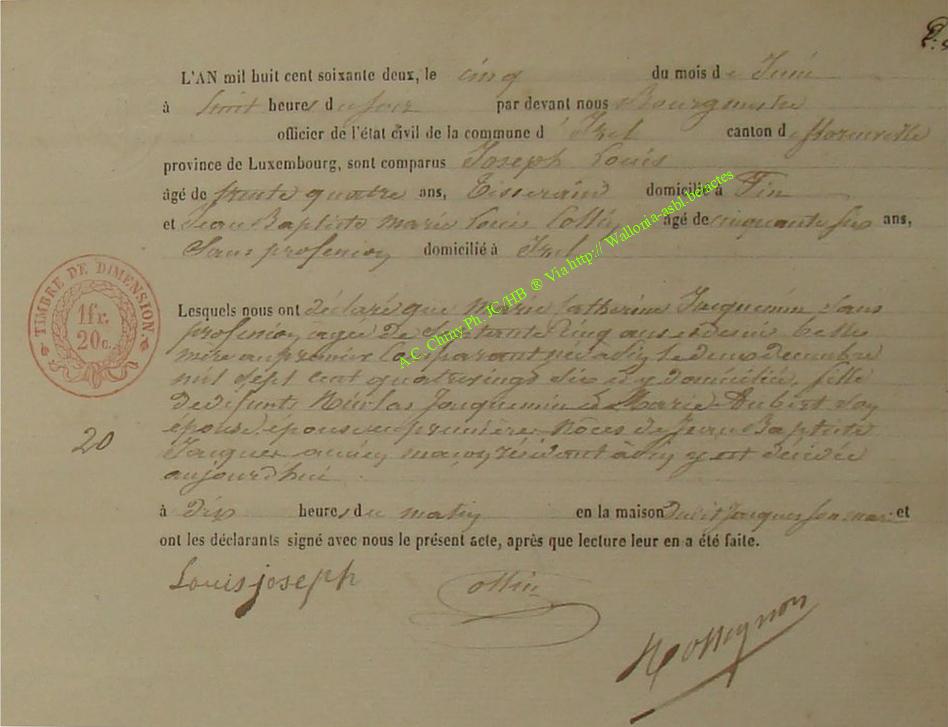 L'AN mil huit cent soixante deux, le cinq du mois de Juin
à huit heures du soir par devant nous Bourgmestre
officier de l'état civil de la commune d'Izel canton de Florenville
province de Luxembourg, sont comparus Joseph Louis
âgé de trente quatre ans, Tisserand domicilié à Pin
et Jean Baptiste Marie Louis Collin âgé de cinquante six ans,
Sans profession domicilié à Izel
Lesquels nous ont déclaré que Marie Catherine Jacquemin, sans
profession, agée de Soixante Cinq ans et demi
mère au premier Comparant née à Pin le deux decembre
mil sept cent quatre vingt dix y domiciliée, fille
de defunts Nicolas Jacquemin & Marie Aubert
épouse en premières Noces de Jean Baptiste
Jacques résidant à Pin y est decedée
aujourd'hui
à dix heures du matin en la maison dudit Jacques son mari et
ont les déclarants signé avec nous le présent acte, après que lecture leur en a été faite.
Louis joseph Collin
Rossignon
TIMBRE DE DIMENSION
1fr.
20c.
20
A.C. Chiny Ph. JC/HB ® Via http:// Wallonia-asbl.be/actes